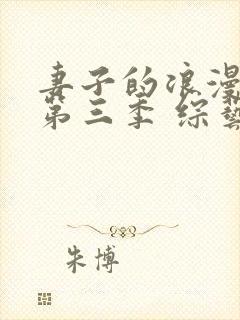 妻子的浪漫
第三季 综艺
朱博